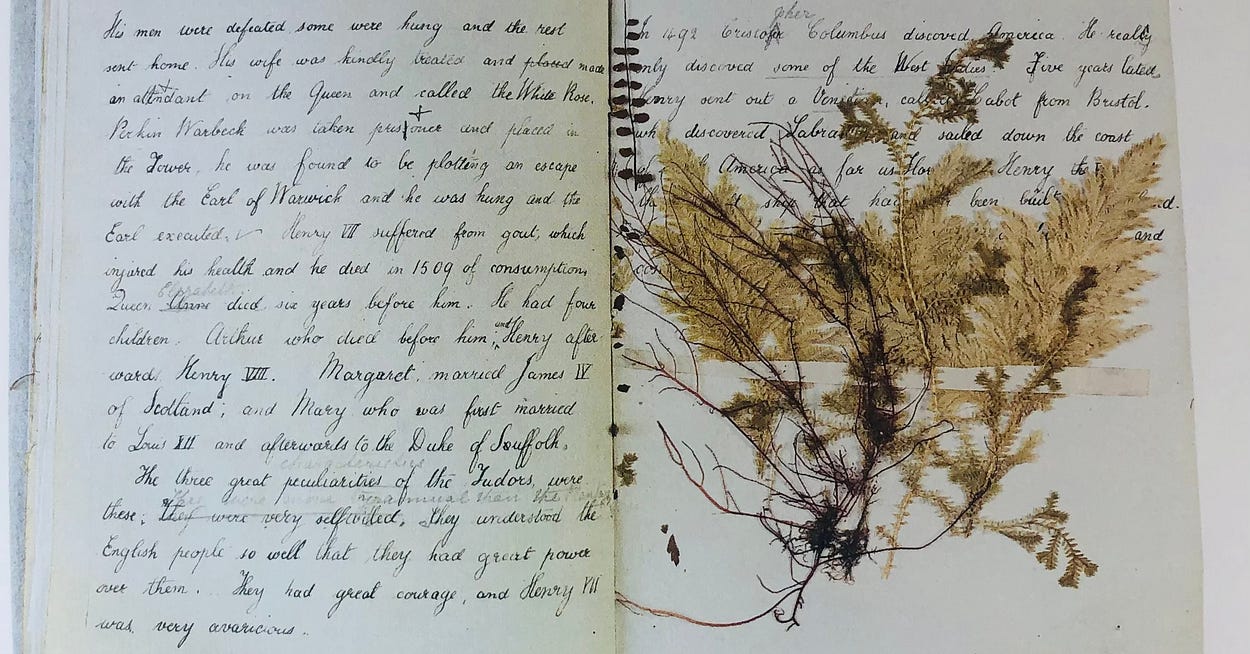 His men were defeated some were hung and the rest
sent home. His wife was kindly treated and placed made
an attndant on the Queen and called the White Rose.
Perkin Warbeck was taken prisoner and placed in
the Tower, he was found to be plotting an escape
with the Earl of Warwick and he was hung and the
Earl executed. Henry VII suffered from gout, which
injured his health and he died in 1509 of consumption,
Elizabeth
Queen Anne died six years before him. He had four
children. Arthur who died before him; and Henry after
wards Henry VIII. Margaret, married James IV
of Scotland; and Mary who was first married
to Louis XII and afterwards to the Duke of Suffolk.
characteristics
The three great peculiarities of the Tudors, were
They were more than the
these; they were very selfwilled, they understood the
English people so well that they had great power
over them. They had great courage, and Henry VII
was very avaricious.
pher
In 1492 Cristofr Columbus discoved America. He really
only discoved some of the West Indies. Five years later,
Henry sent out a called Cabot from Bristol.
who discovered and sailed down the coast
America as far us Henry the
ship that had been built
and